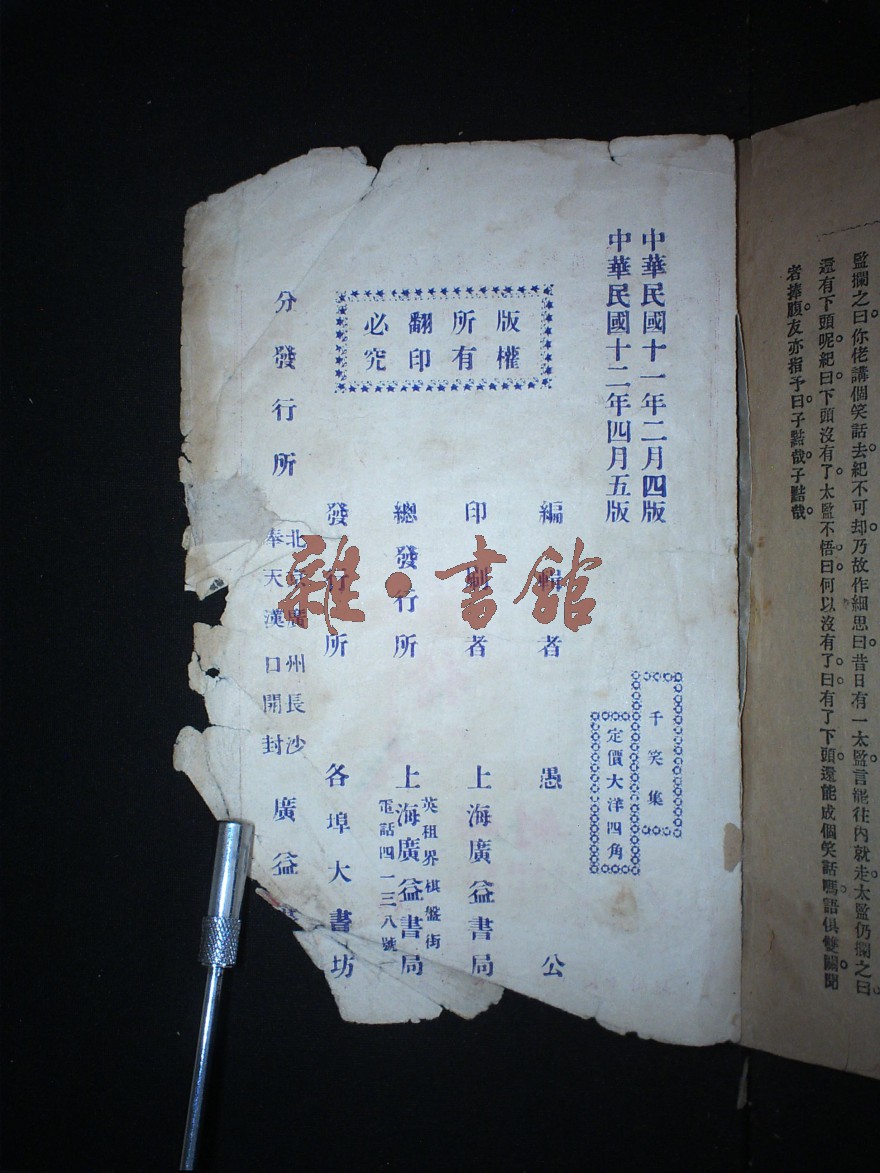 監攔之曰你佬講個笑話去紀不可却乃故作細思曰昔日有一太監言能往內就走太監仍攔之曰
還有下頭呢紀曰下頭沒有了太監不悟曰何以沒有了曰有了下頭還能成個笑話嗎語俱雙關聞
者捧腹友亦指予曰子黠哉子黠哉
中華民國十一年二月四版
中華民國十二年四月五版
千笑集
定價大洋四角
版權
所有
翻印
必究
編輯者 愚公
印刷者 上海廣益書局
總發行所 上海廣益書局
英租界棋盤街
電話四一三八號
發行所 各埠大書坊
分發行所
北京廣州長沙
奉天漢口開封
廣益
雜·書館